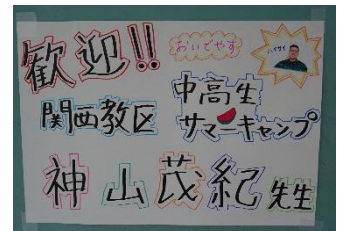 歓迎!!
おいでやす
ハイサイ
関西教区
中高生
サマーキャンプ
神山茂紀先生